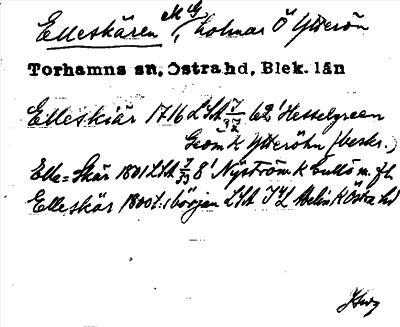 Elleskären M G, holmar Ö Ytterön
Torhamns sn, Östra hd, Blek. län
Elleskiär 1716 LSA 62' Hesselgreen
Geom K Ytteröhn (beskr.)
Elle=Skär 1801 LSA 8' Nyström K
Elleskär 1800t:s början LSA Melin K Östra hd